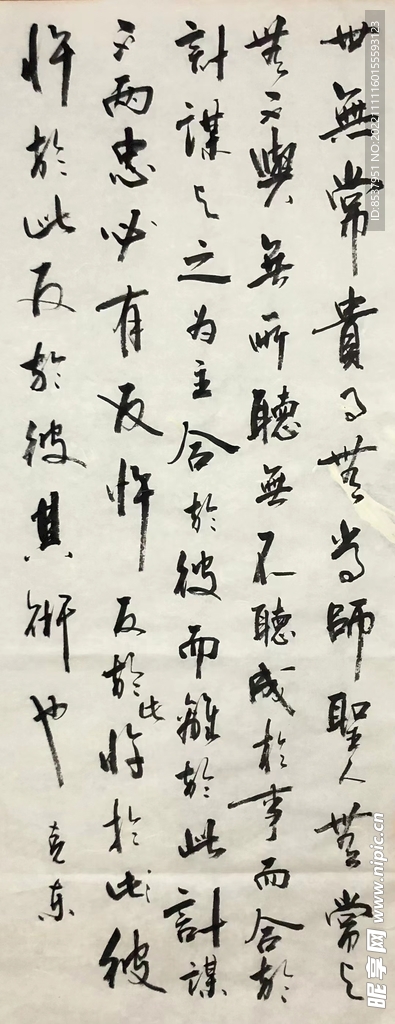 世無常貴事無常師聖人無常与
無不與無所聽無不聽成於事而合於
計謀与之为主合於彼而離於此計謀
不兩忠必有反忤反於此忤於此彼
忤於此反於彼其術也
东
ID:8537951 NO:20221111160155593123
昵享网 www.nipic.cn